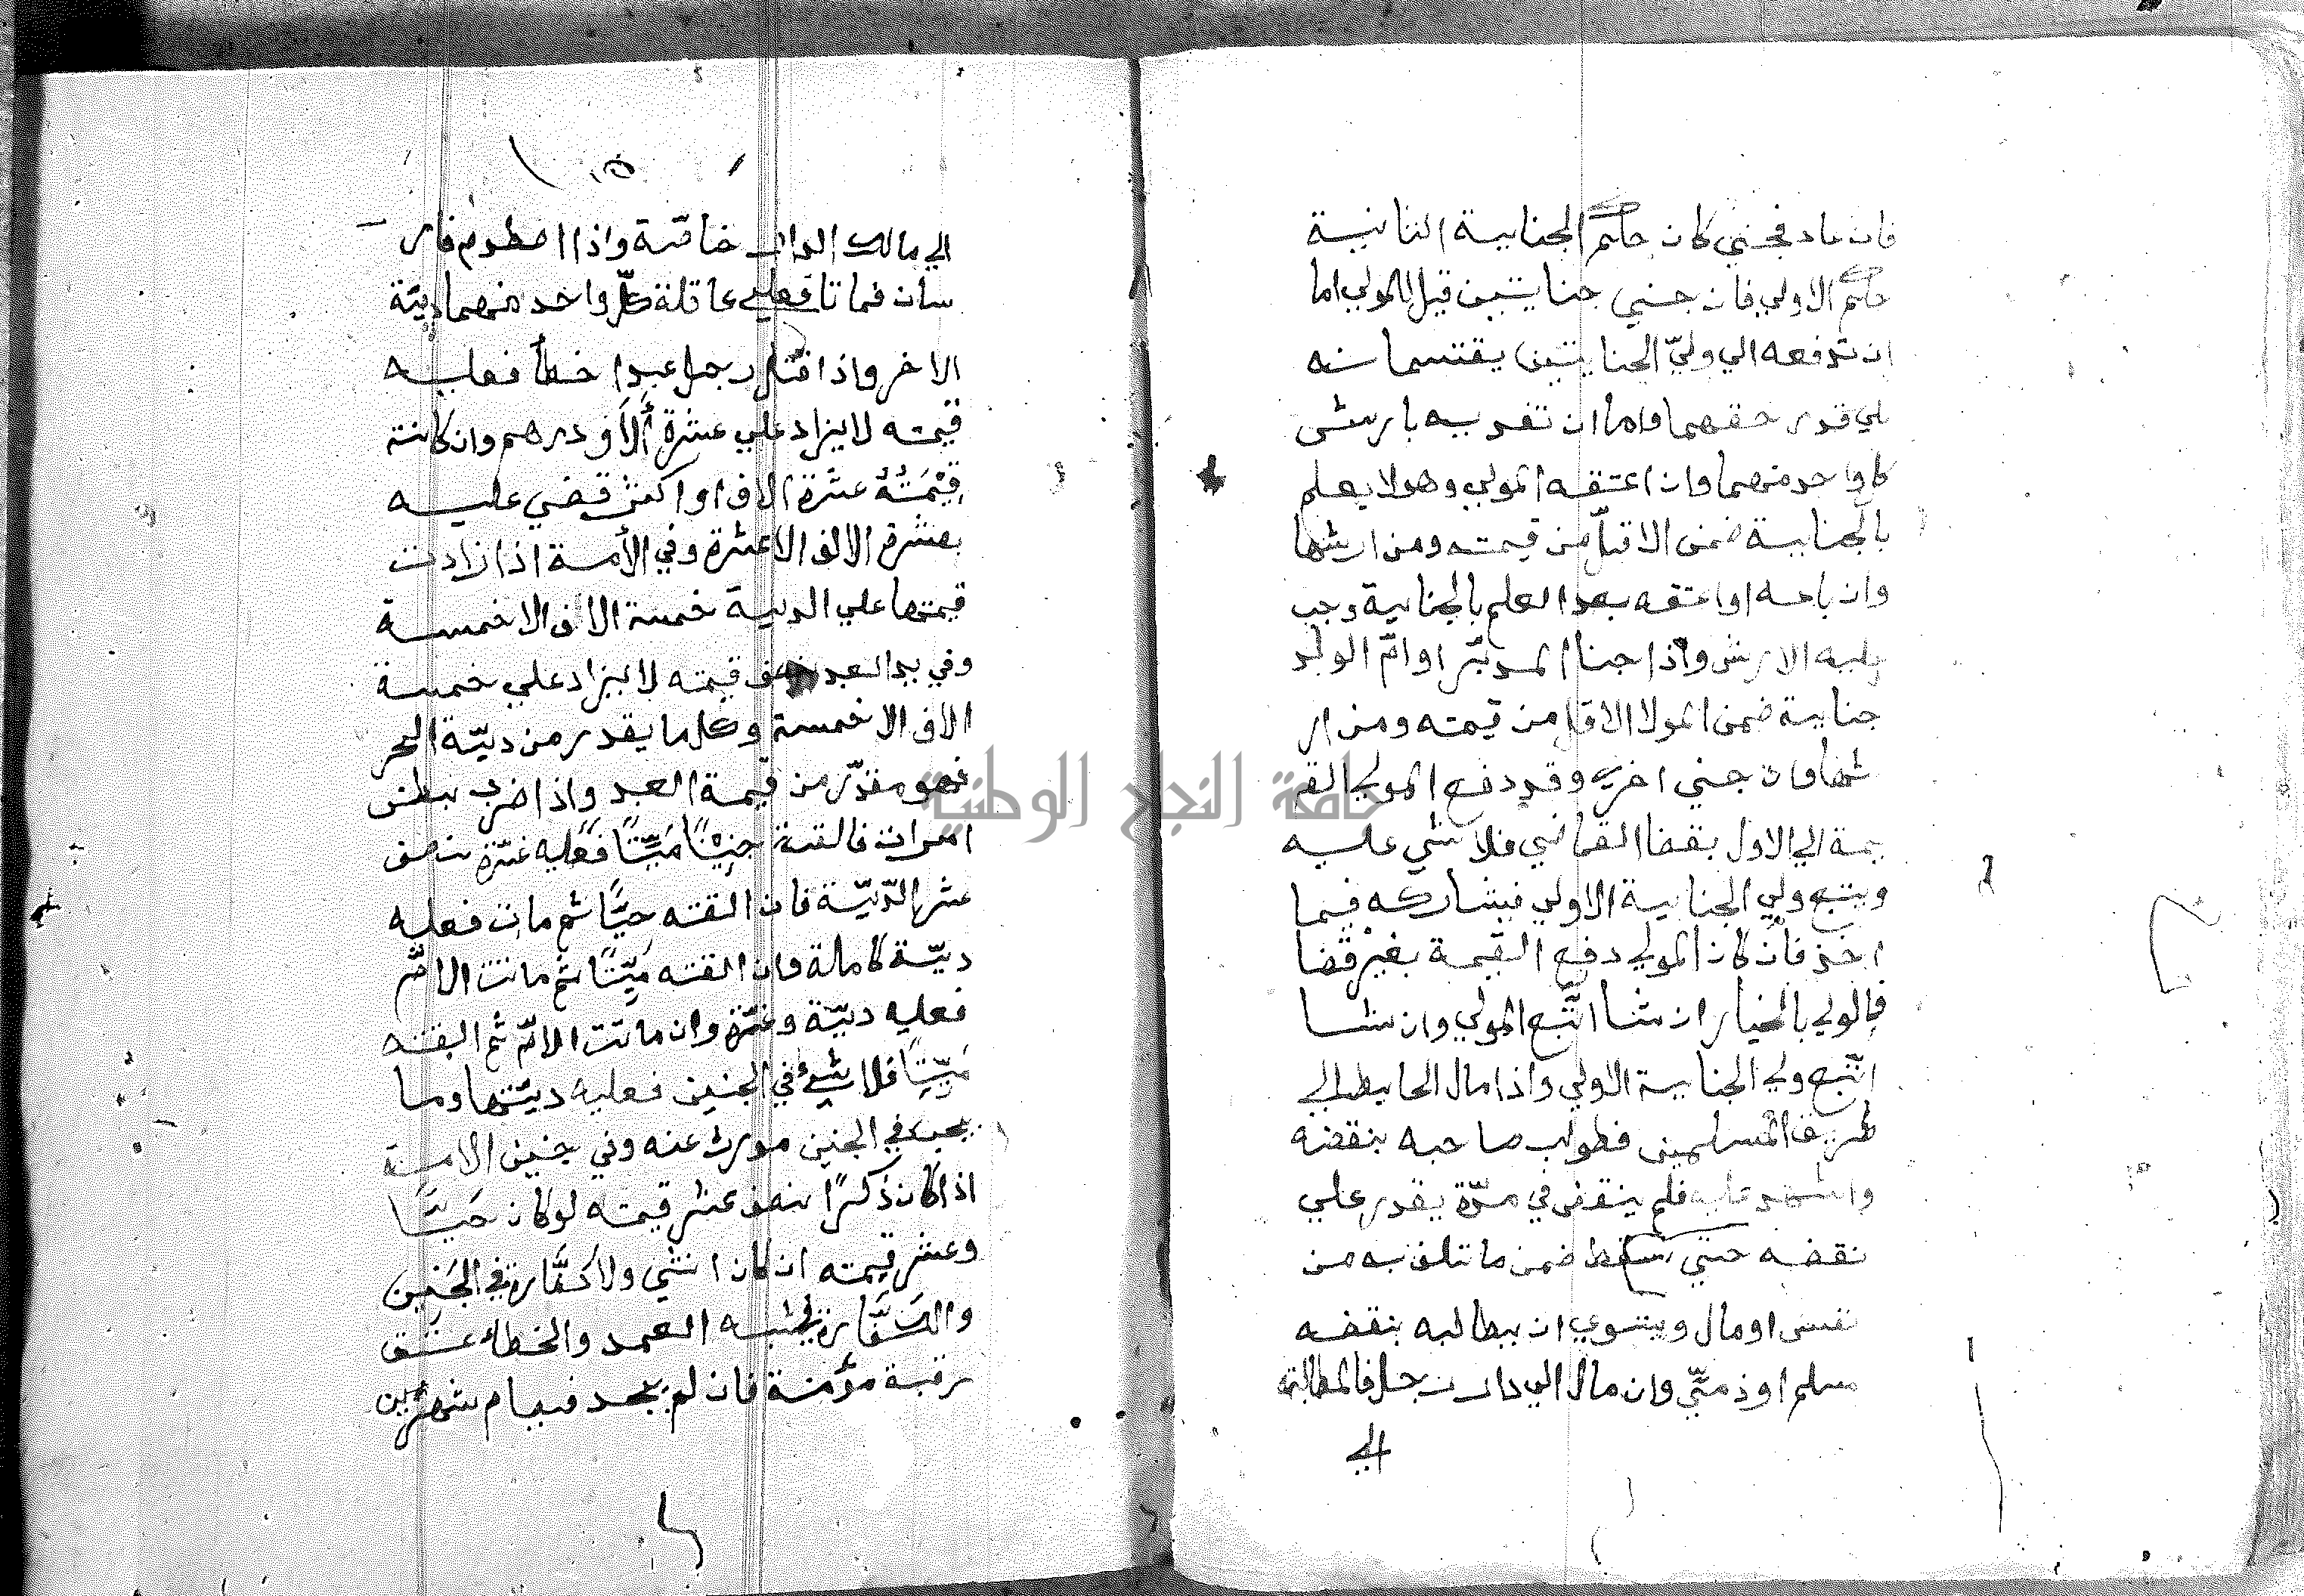 فان عاد فجني كان حكم الجناية الثانية
حكم الاولي فان جني جنايتين قيل للمولي اما
ان تدفعه الي وليّ الجنايتين يقتسمانه
علي قدر حقهما واما ان تفديه بارش
كل واحد منهما وان اعتقه المولي وهو لا يعلم
بالجناية ضمن الاقل من قيمته ومن ارشها
وان باعه او اعتقه بعد العلم بالجناية وجب
عليه الارش واذا جنا المدبّر او امّ الولد
جناية ضمن المولا الاقل من قيمته ومن ار
شها وان جني اخري وقد دفع المولي القيـ
يمة الي الاول بقضا القاضي فلا شي عليه
ويتبع ولي الجناية الاولي فيشاركه فيما
اخذ فان كان المولي دفع القيمة بغير قضا
فالولي بالخيار ان شا اتّبع المولي وان شا
اتّبع ولي الجناية الاولي واذا مال الحايط الي
طريق المسلمين فطولب صاحبه بنقضه
واشهد عليه فلم ينقض في مدّة يقدر علي
نقضه حتي سقط ضمن ما تلف به من
نفس او مال ويستوي ان يطالبه بنقضه
مسلم او ذمّيّ وان مال الي دار رجل فالمطالبة
الي
الي مالك الدار خاصّة واذا اصطدم فار
سان فماتا فعلي عاقلة كلّ واحد منهما ديّة
الاخر واذا قتل رجل عبدا خطأ فعليه
قيمته لا يزاد علي عشرة ألاف درهم وان كانت
قِيْمَتُهُ عشرة الاف او اكثر قضي عليه
بعشرة الاف الا عشرة وفي الأمة اذا زادت
قيمتها علي الدية خمسة الاف الا خمسة
وفي يد العبد نصف قيمته لا يزاد علي خمسة
الاف الا خمسة وكل ما يقدر من ديّة الحر
فهو مقدّر من قيمة العبد واذا ضرب بطن
امرات فالقت جنِيْنًا مَيِّتًا فعَليه غرّة نصف
عشر الدّيّة فان القته حيًّا ثم مات فعليه
ديّة كاملة وان القته مَيِّتًا ثم ماتت الامّ
فعليه ديّة وغرّة وان ماتت الامّ ثم القته
مَيِّتًا فلا شيءٌ في الجنين فعليه ديّتها وما
يجب في الجنين مورث عنه وفي جنين الامة
اذا كان ذكرًا نصف عشر قيمته لو كان حَيًّا
وعشر قيمته ان كان انثي ولا كفّارة في الجَنِين
والكَفَّارة في شبه العمد والخطاء عتق
رقبة مؤمنة فان لم يجد فصيام شهرين
جامعة النجاح الوطنية